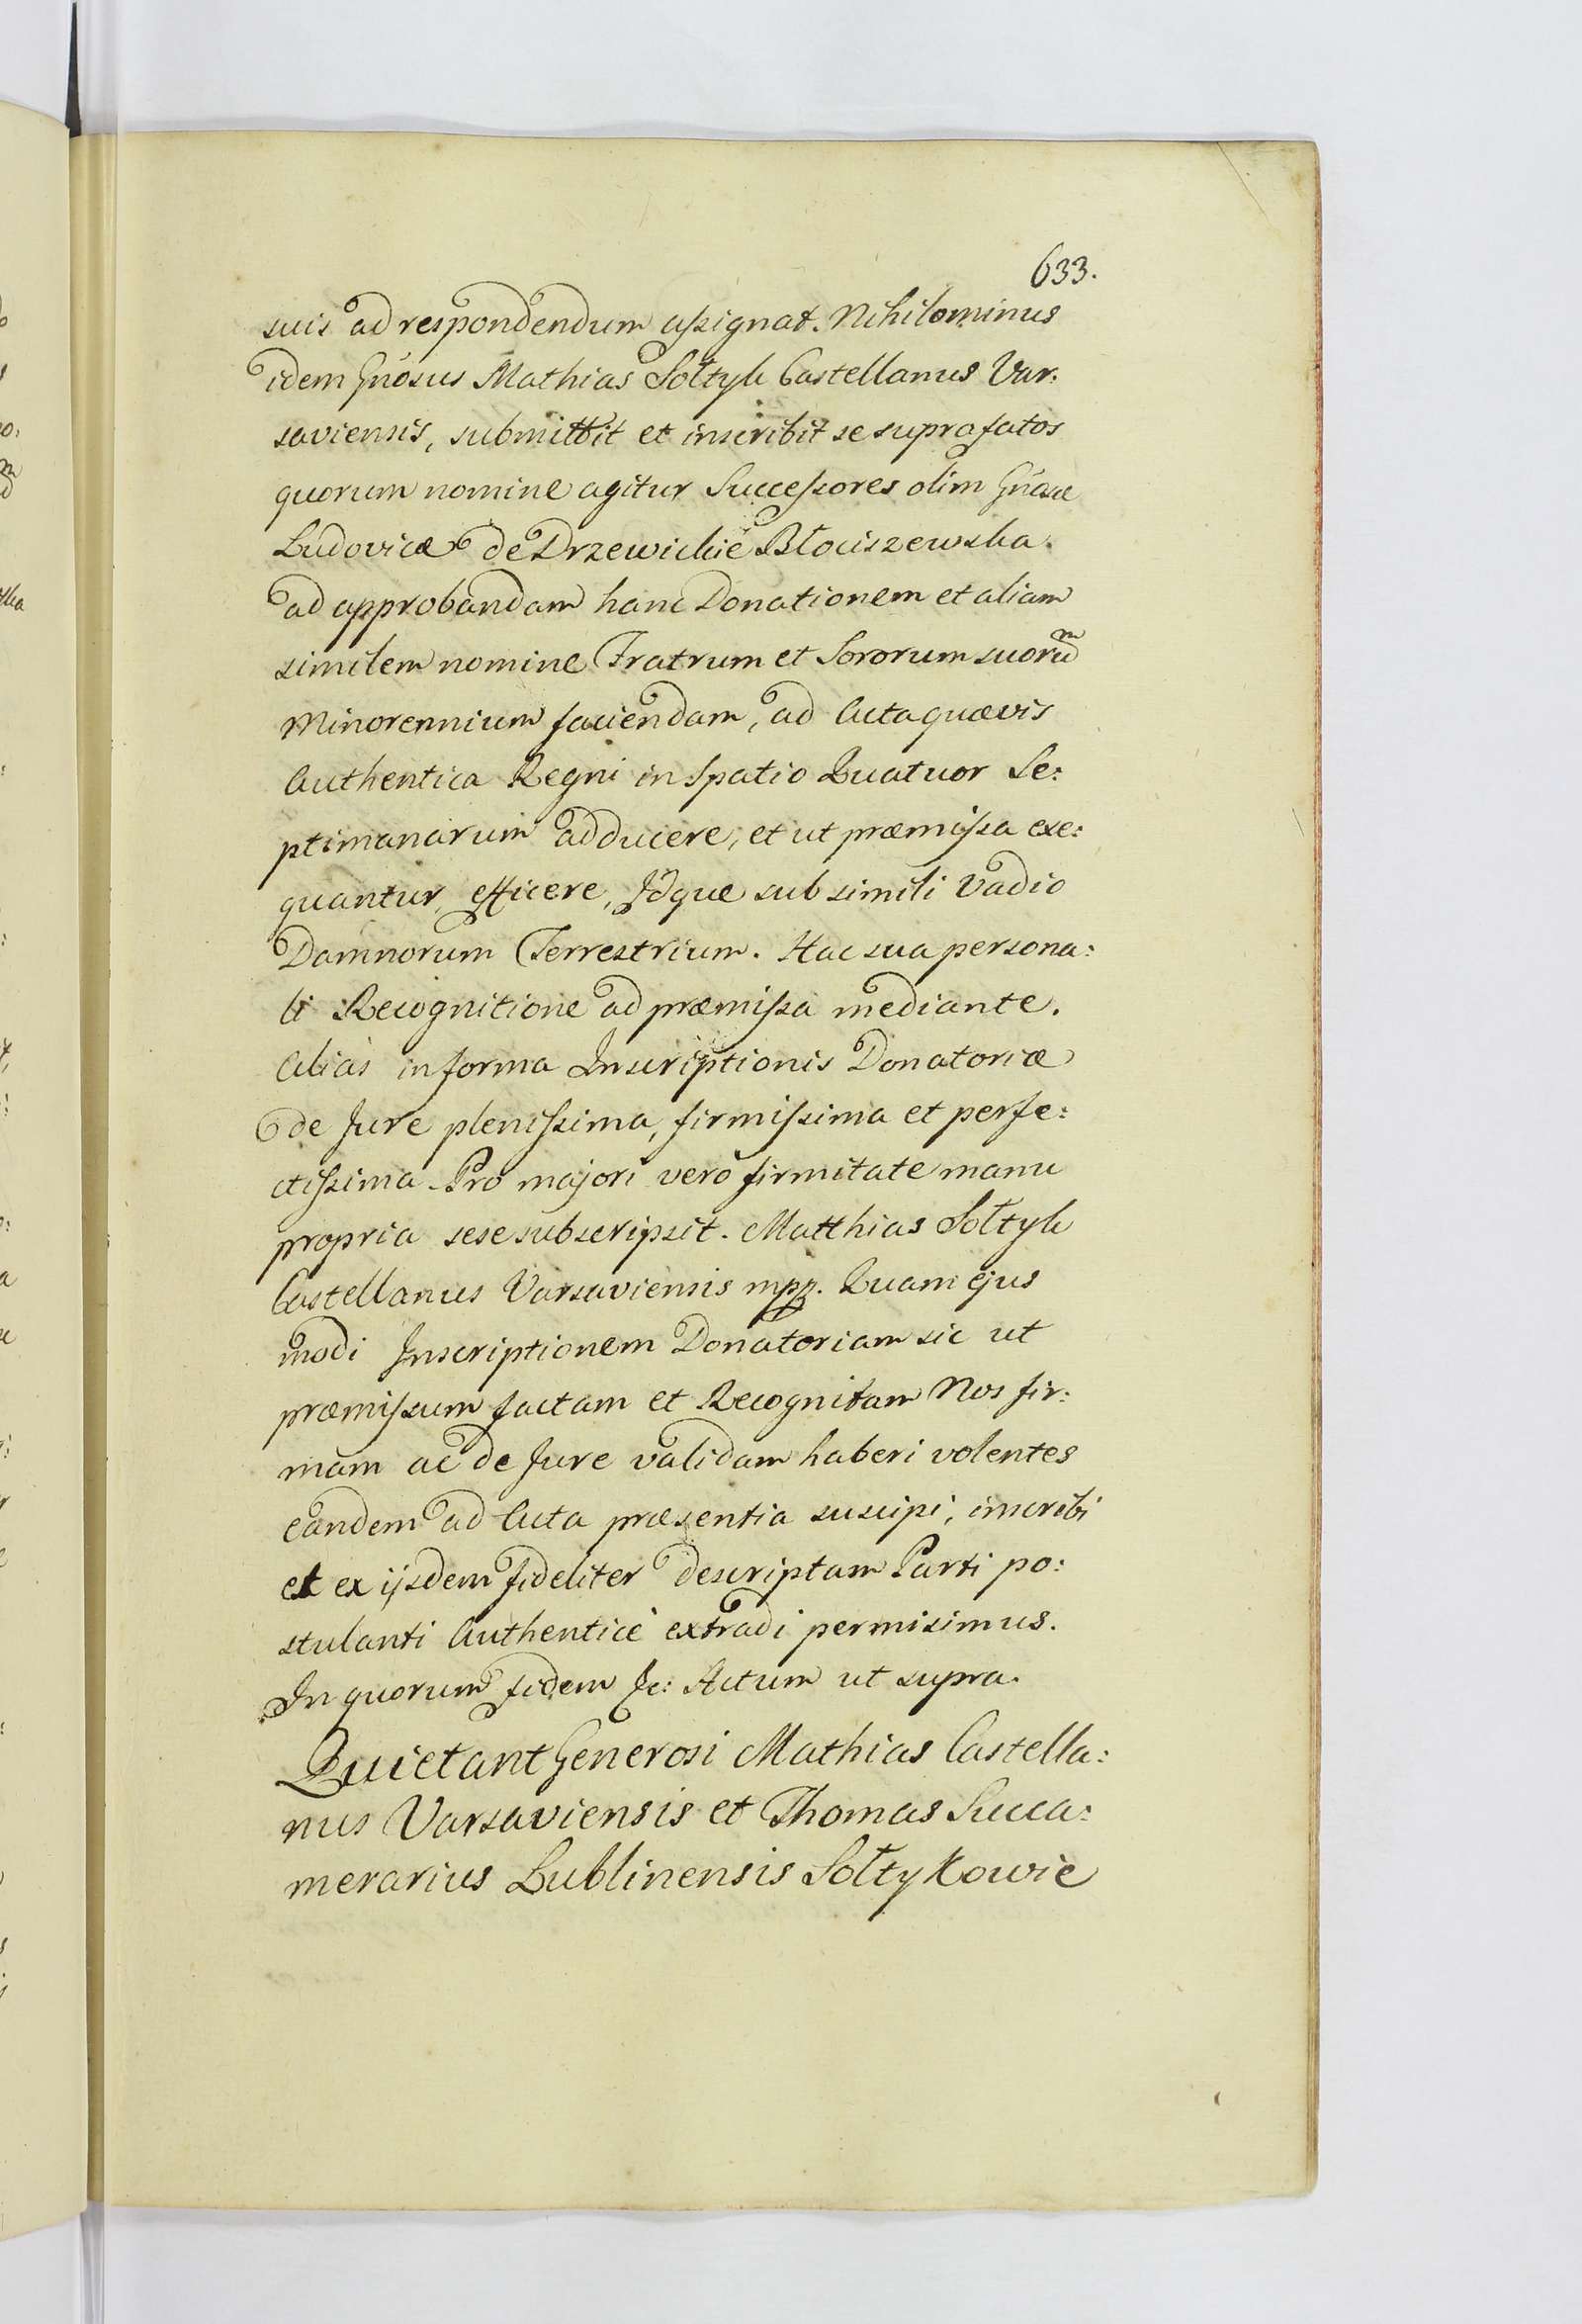 633.
suis ad respondendum assignat. Nihilominus
idem Gnosus Mathias Sołtyk Castellanus Var:
saviensis, submittit et inscribit se suprafatos
quorum nomine agitur Successores olim Gnasæ
Ludovicæ de Drzewickie Błociszewska.
ad approbandam hanc Donationem et aliam
similem nomine Fratrum et Sororum suorum
Minorennium faciendam, ad Acta quævis
Authentica Regni in Spatio Quatuor Se:
ptimanarum adducere, et ut præmissa exe:
quantur, efficere, Idque sub simili Vadio
Damnorum Terrestrium. Hac sua persona:
li Recognitione ad præmissa mediante.
Alias in forma Inscriptionis Donatoriæ
de Jure plenissima, firmissima et perfe:
ctissima. Pro majori vero firmitate manu
propria sese subscripsit. Matthias Sołtyk
Castellanus Varsaviensis mpp. Quam ejus
modi Inscriptionem Donatoriam sic ut
præmissum factam et Recognitam Nos fir:
mam ac de Jure validam haberi volentes
eandem ad Acta præsentia suscipi, inscribi
et ex ijsdem fideliter descriptam Parti po:
stulanti Authenticè extradi permisimus.
In quorum fidem &c: Actum ut supra.
Quietant Generosi Mathias Castella:
nus Varsaviensis et Thomas Succa:
merarius Lublinensis Sołtykowie